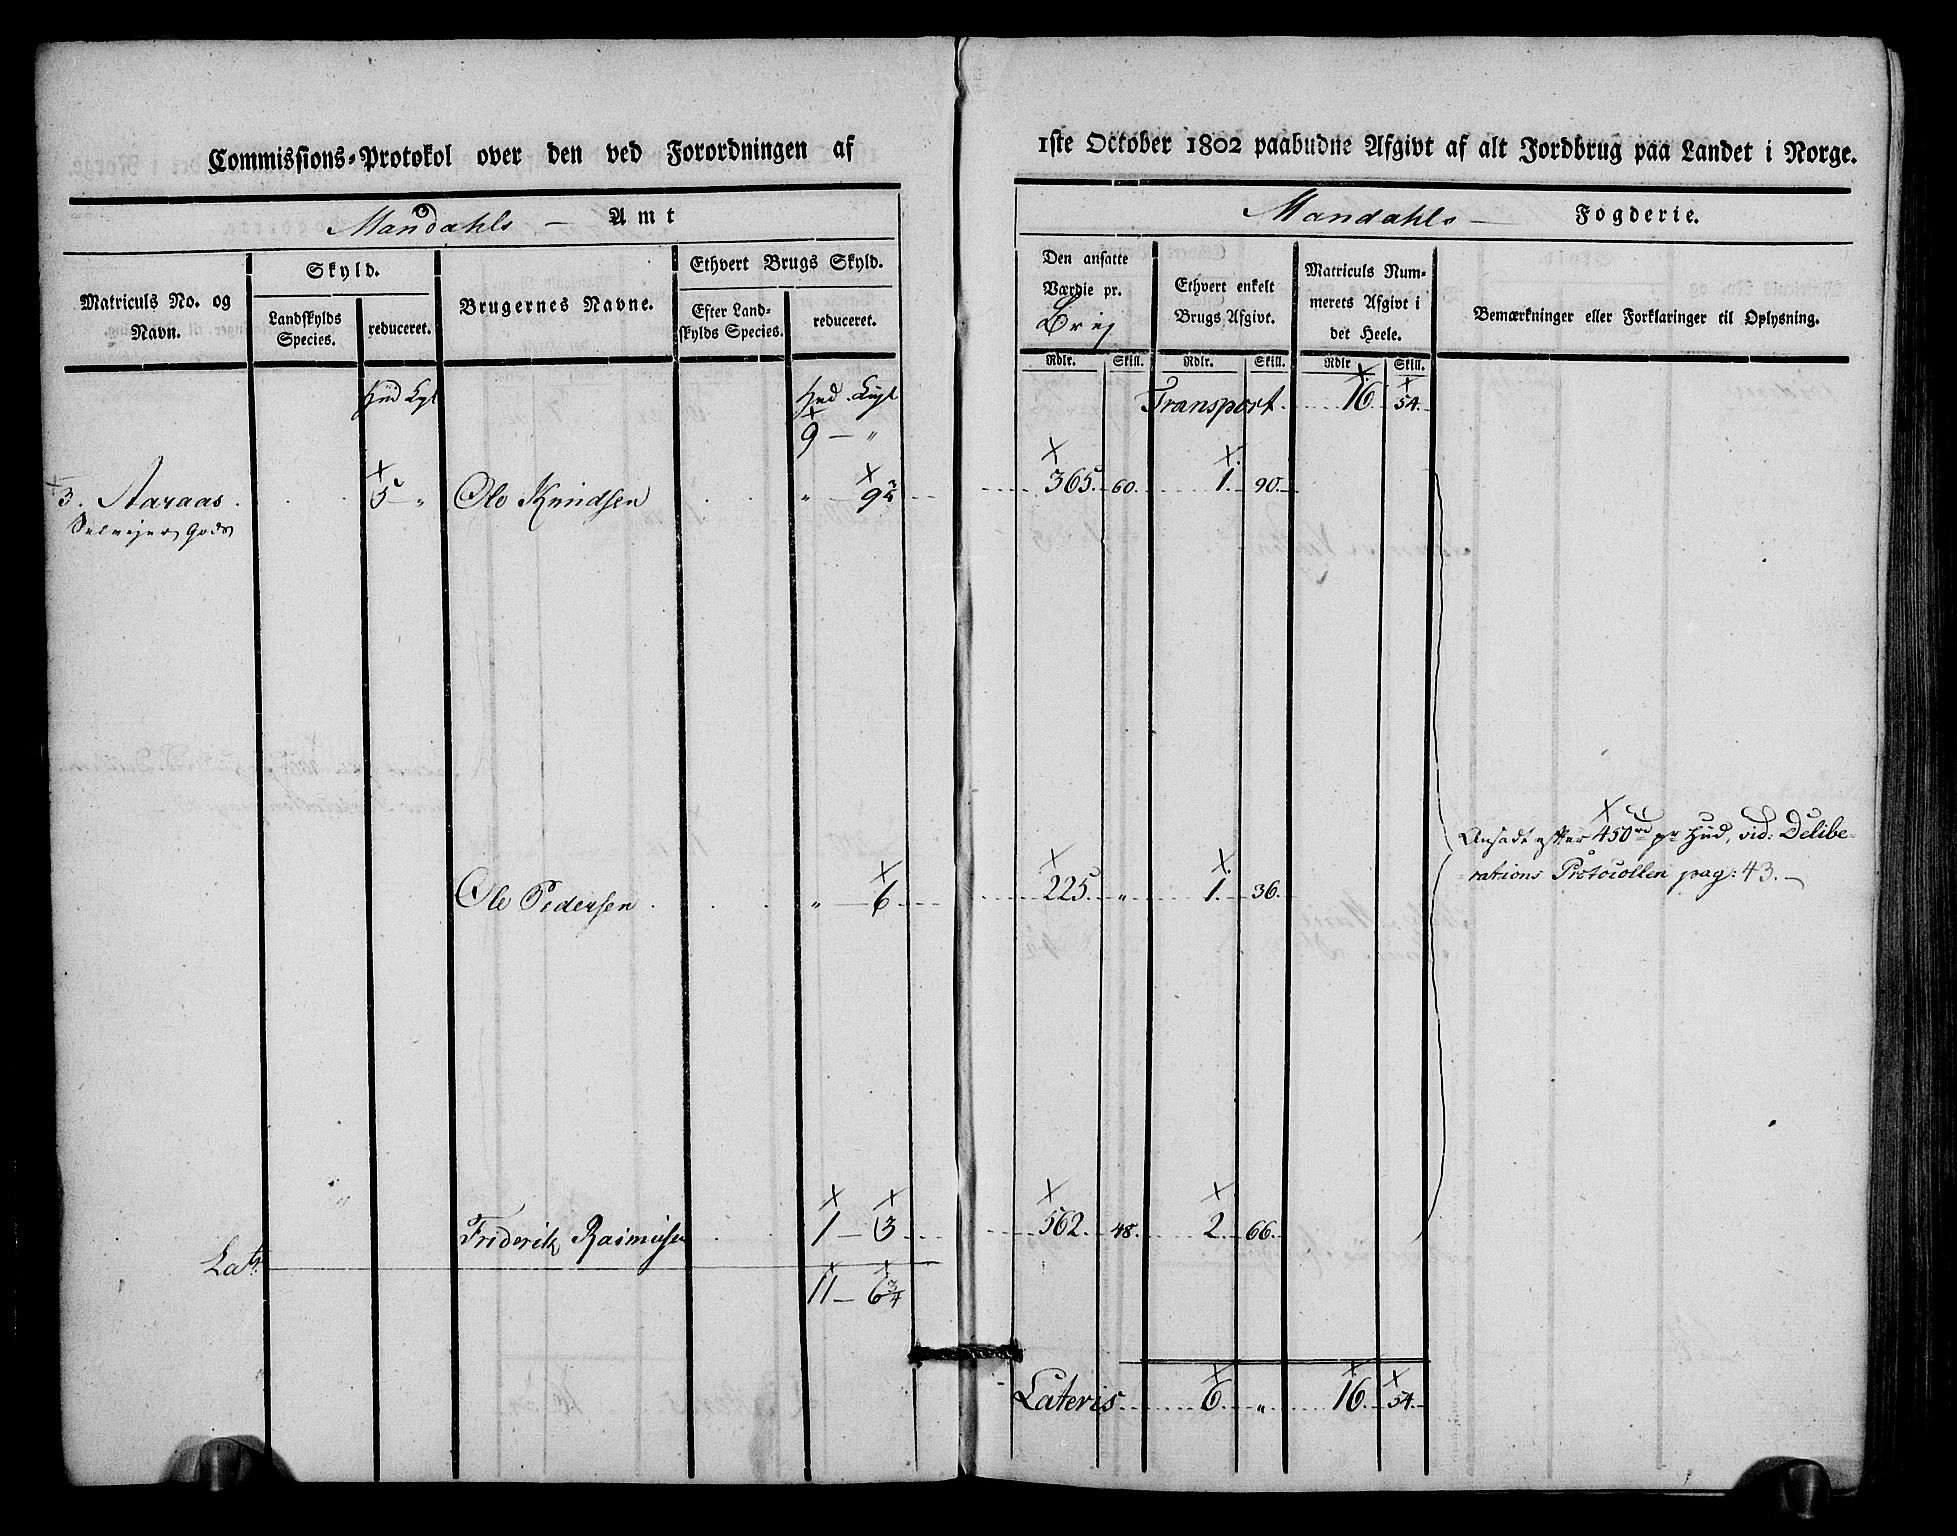 Commissions-Protokol over den ved Forordningen af
Mandahls — Amt
Matriculs No. og Navn.
Skyld.
Landskylds Species.
reduceret.
Brugernes Navne.
Ethvert Brugs Skyld.
Efter Landskylds Species.
reduceret.
Hud Kgl
Hud. Kugl
9 — "
3. Aaraas.
Selvejer Gods
5 — "
Ole Knudsen
" — 9 3/4
Ole Pedersen
" — 6
Friderik Rasmusen
1 — 3
Lat:
11 — 6 3/4
1ste October 1802 paabudne Afgivt af alt Jordbrug paa Landet i Norge.
Mandahls — Fogderie.
Den ansatte Værdie pr.
Ethvert enkelt Brugs Afgivt.
Matriculs Nummerets Afgivt i det Heele.
Bemærkninger eller Forklaringer til Oplysning.
Rdlr. Skill. Rdlr. Skill. Rdlr Skill.
Transport. 16. 54.
365. 60. 1. 90.
225. " 1. 36.
Ansadt efter 450 rd pr Hud, vid: Delibe-
rations Protocollen pag: 43. —
562. 48. 2. 66.
Lateris. 6. " 16. 54.